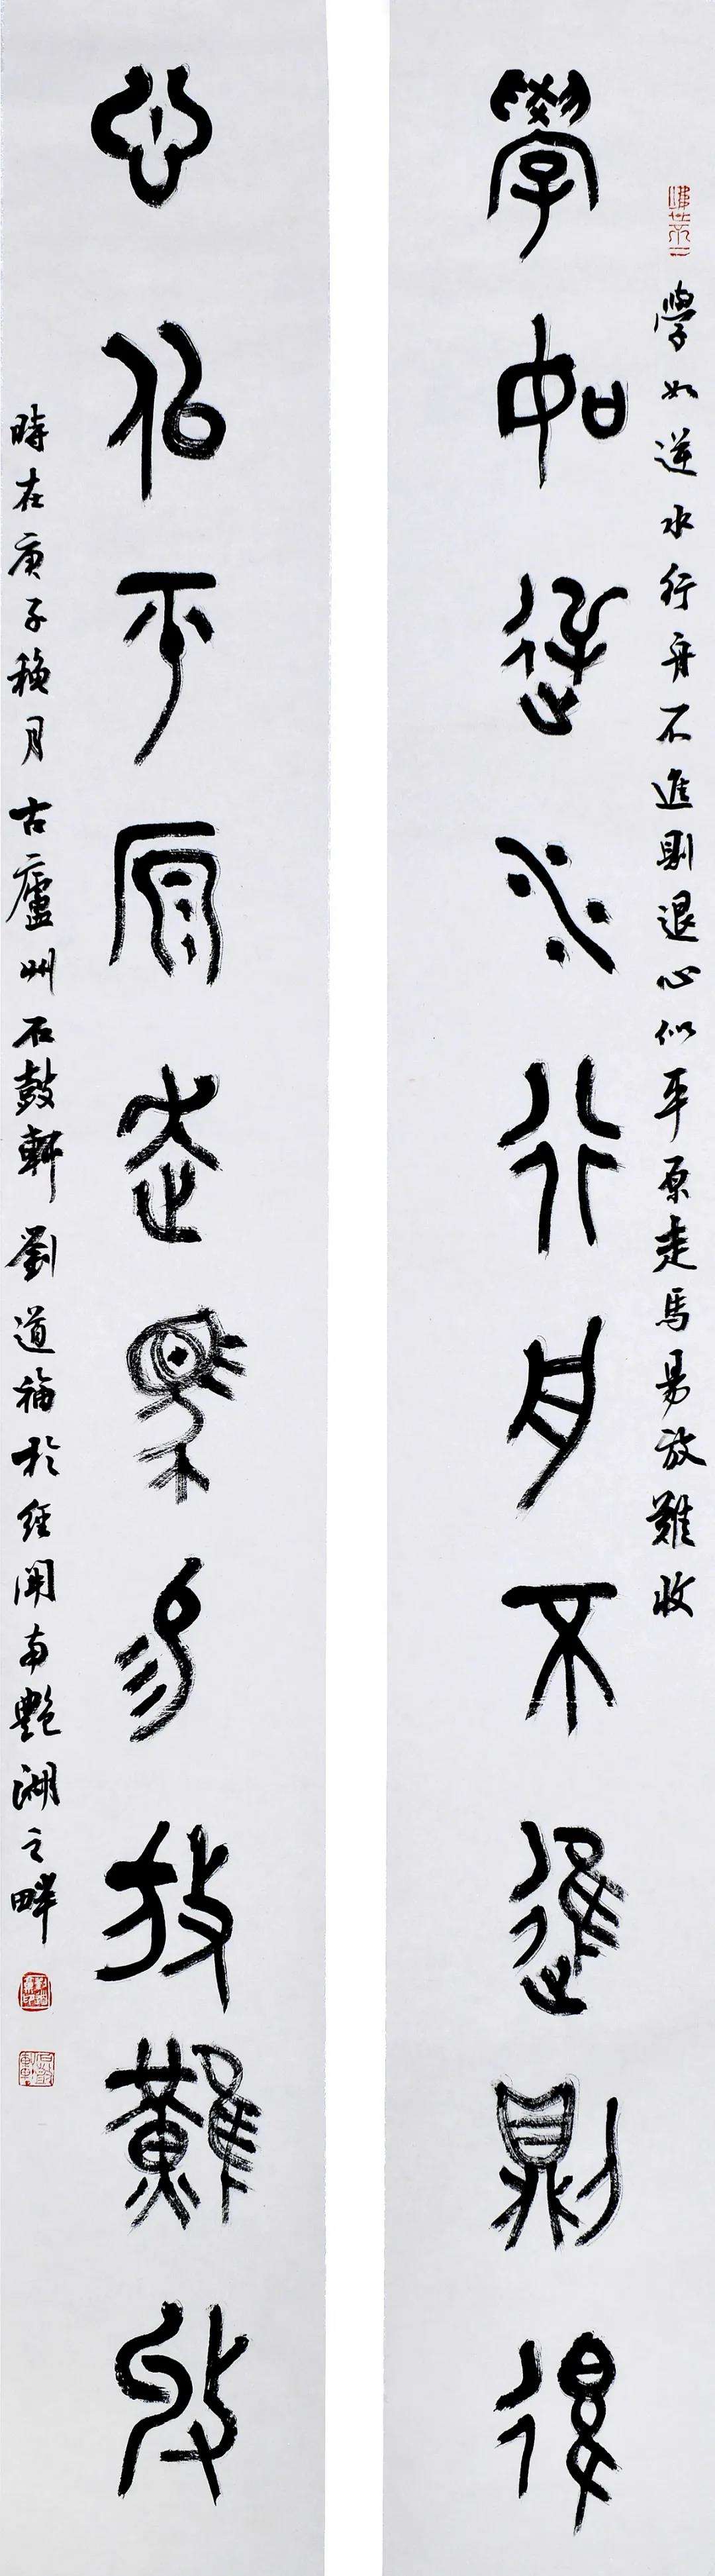 學如逆水行舟不進則退
學如逆水行舟不進則退心似平原走馬易放難收
心似平原走馬易放難收
時在庚子穐月古廬州石鼓軒劉道福於經開南艷湖之畔